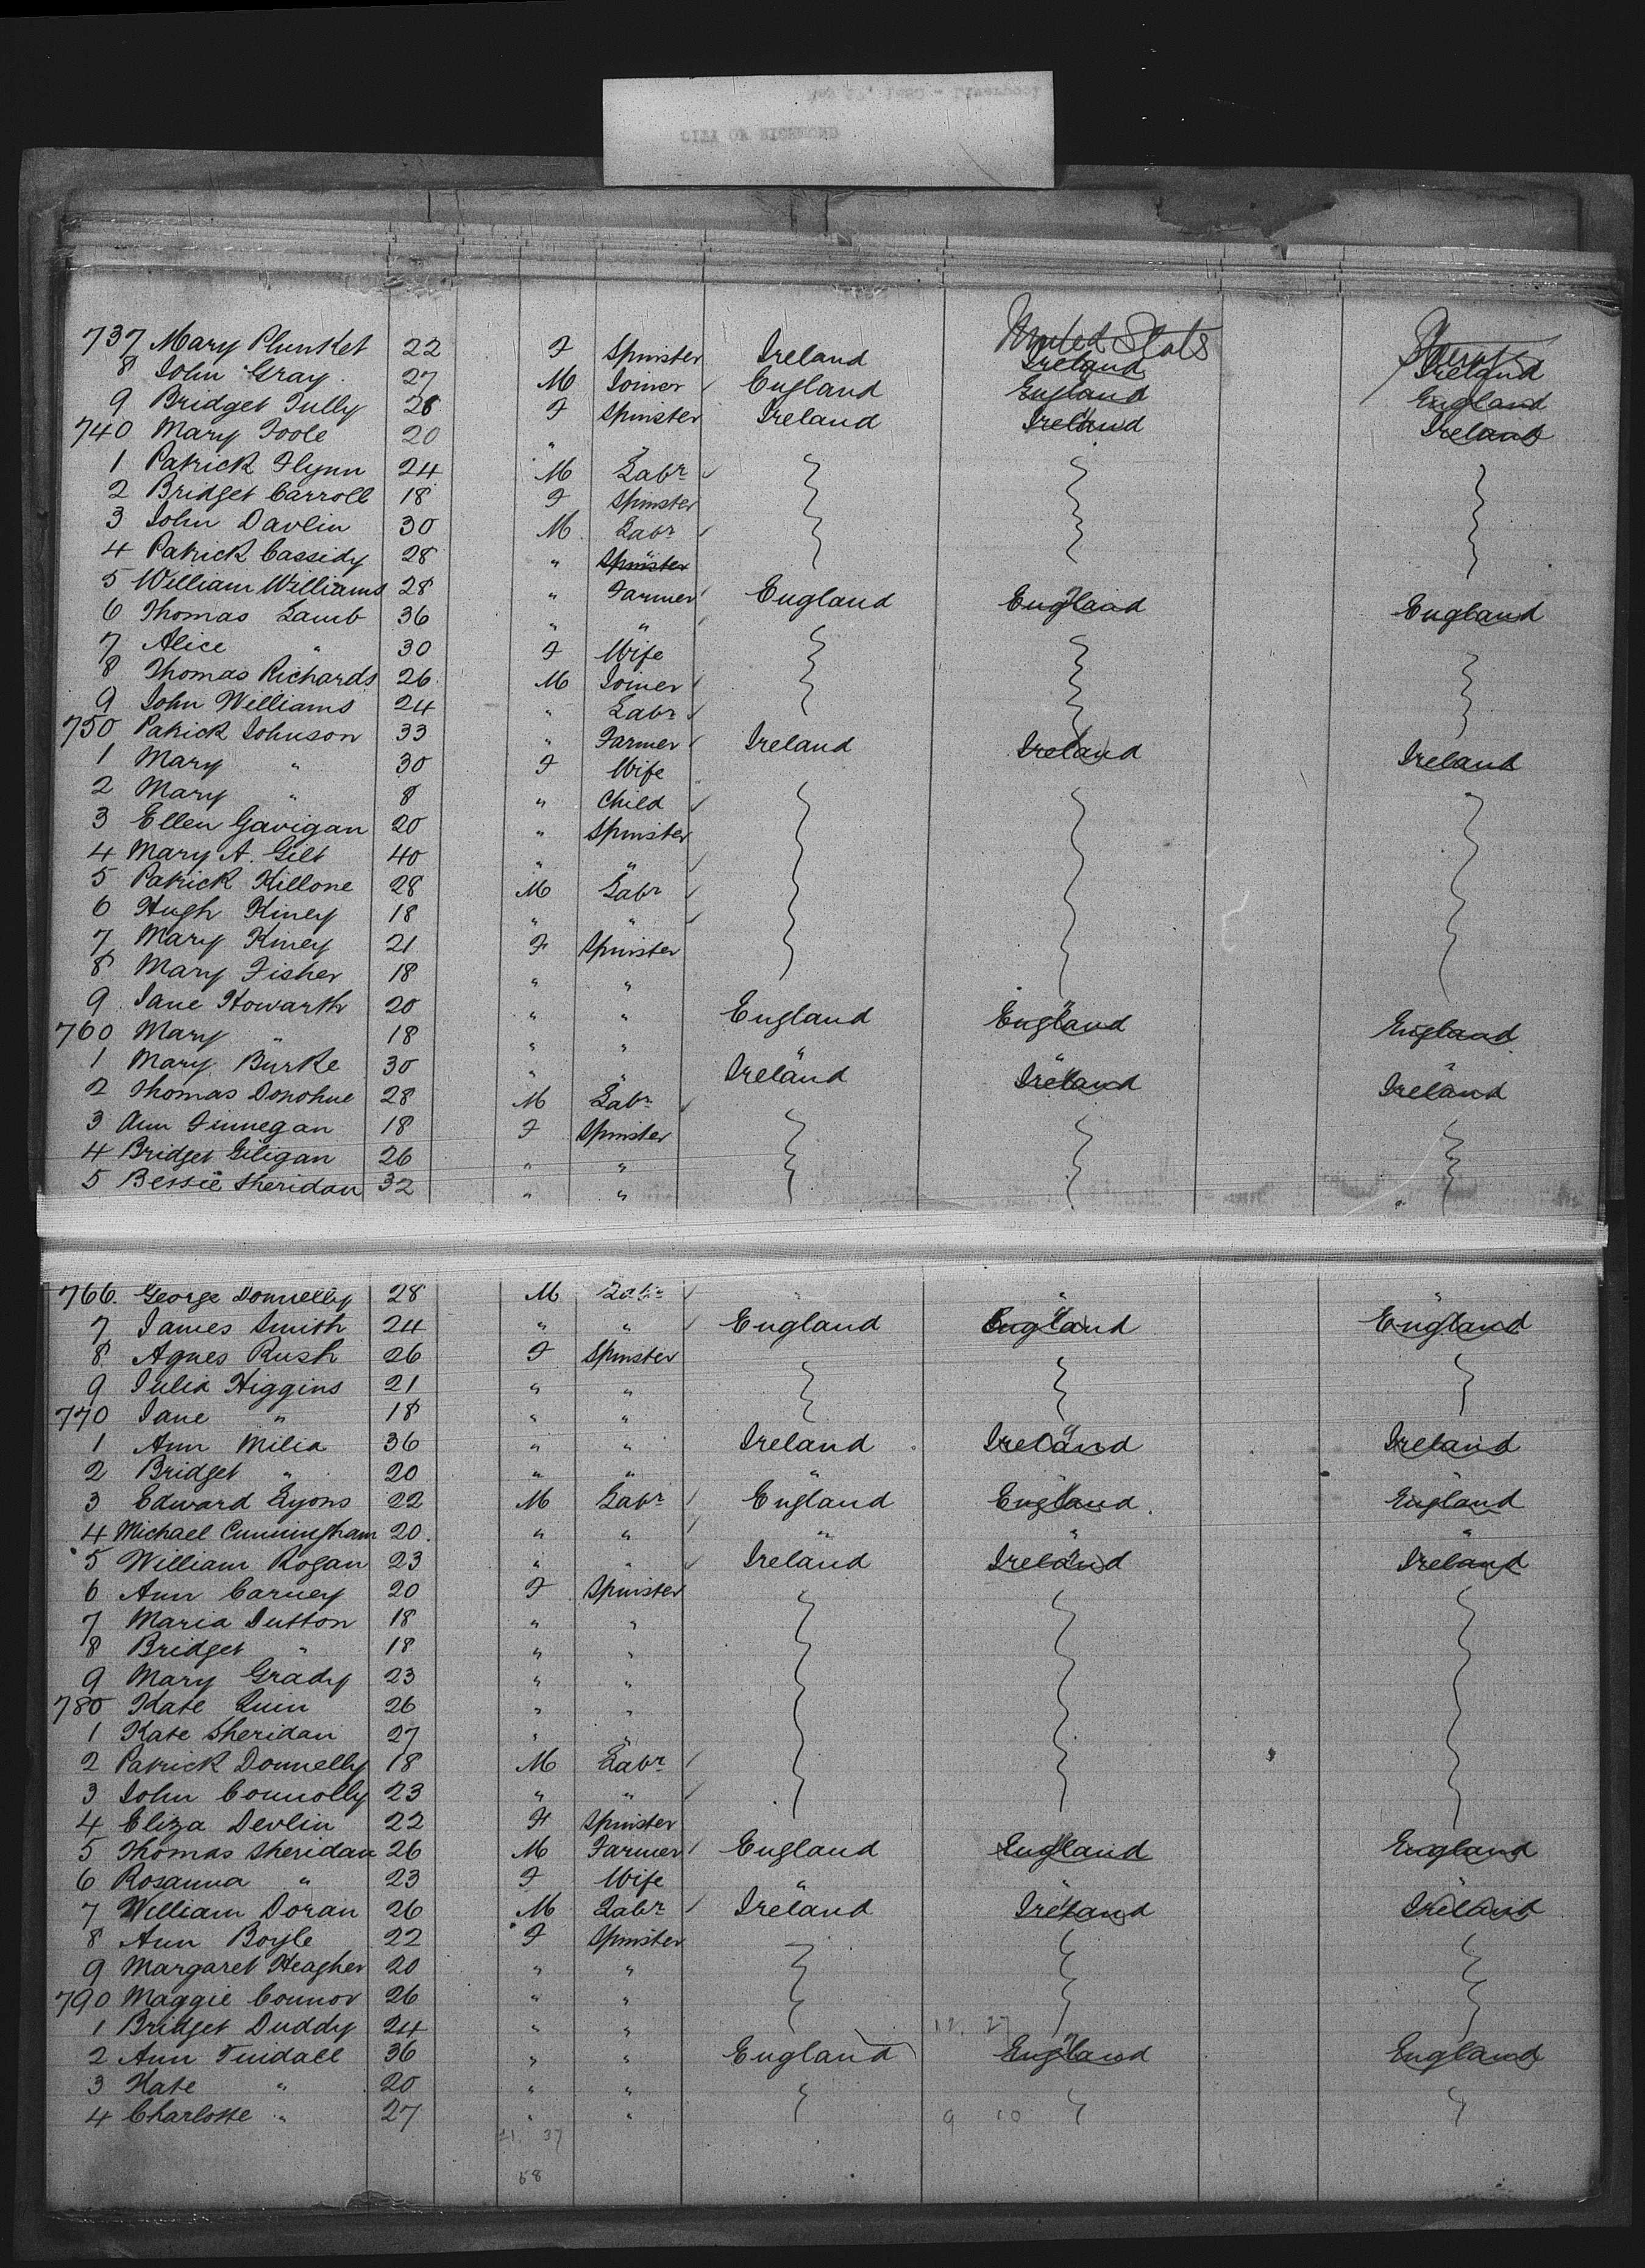 CITY OF RICHMOND
737 Mary Plunket 22 F Spinster Ireland United Stats Ireland Ireland
8 John Gray 27 M Joiner England England England
9 Bridget Tully 28 F Spinster Ireland Ireland Ireland
740 Mary Toole 20 " "
1 Patrick Flynn 24 M Labr
2 Bridget Carroll 18 F Spinster
3 John Davlin 30 M Labr
4 Patrick Cassidy 28 " Spinster "
5 William Williams 28 " Farmer England England England
6 Thomas Lamb 36 " "
7 Alice " 30 F Wife
8 Thomas Richards 26 M Joiner
9 John Williams 24 " Labr
750 Patrick Johnson 33 " Farmer Ireland Ireland Ireland
1 Mary " 30 F Wife
2 Mary " 8 " Child
3 Ellen Gavigan 20 " Spinster
4 Mary A. Gilt 40 " "
5 Patrick Killone 28 M Labr
6 Hugh Kiney 18 " "
7 Mary Kiney 21 F Spinster
8 Mary Fisher 18 " "
9 Jane Howarth 20 " " England England England
760 Mary " 18 " " " " "
1 Mary Burke 30 " " Ireland Ireland Ireland
2 Thomas Donohue 28 M Labr " " "
3 Ann Finnegan 18 F Spinster
4 Bridget Giligan 26 " "
5 Bessie Sheridan 32 " "
766. George Donnelly 28 M Labr " " "
7 James Smith 24 " " England England England
8 Agnes Rush 26 F Spinster
9 Julia Higgins 21 " "
770 Jane " 18 " "
1 Ann Milia 36 " " Ireland Ireland Ireland
2 Bridget " 20 " " " " "
3 Edward Lyons 22 M Labr England England England
4 Michael Cunningham 20 " " " " "
5 William Rogan 23 " " Ireland Ireland Ireland
6 Ann Carney 20 F Spinster
7 Maria Dutton 18 " "
8 Bridget " 18 " "
9 Mary Grady 23 " "
780 Kate Quin 26 " "
1 Kate Sheridan 27 " "
2 Patrick Donnelly 18 M Labr
3 John Connolly 23 " "
4 Eliza Devlin 22 F Spinster
5 Thomas Sheridan 26 M Farmer England England England
6 Rosanna " 23 F Wife " " "
7 William Doran 26 M Labr Ireland Ireland Ireland
8 Ann Boyle 22 F Spinster
9 Margaret Heagher 20 " "
790 Maggie Connor 26 " "
1 Bridget Duddy 24 " " 27
2 Ann Tindall 36 " " England England England
3 Kate " 20 " "
4 Charlotte " 27 " " 9 10
21. 37
58